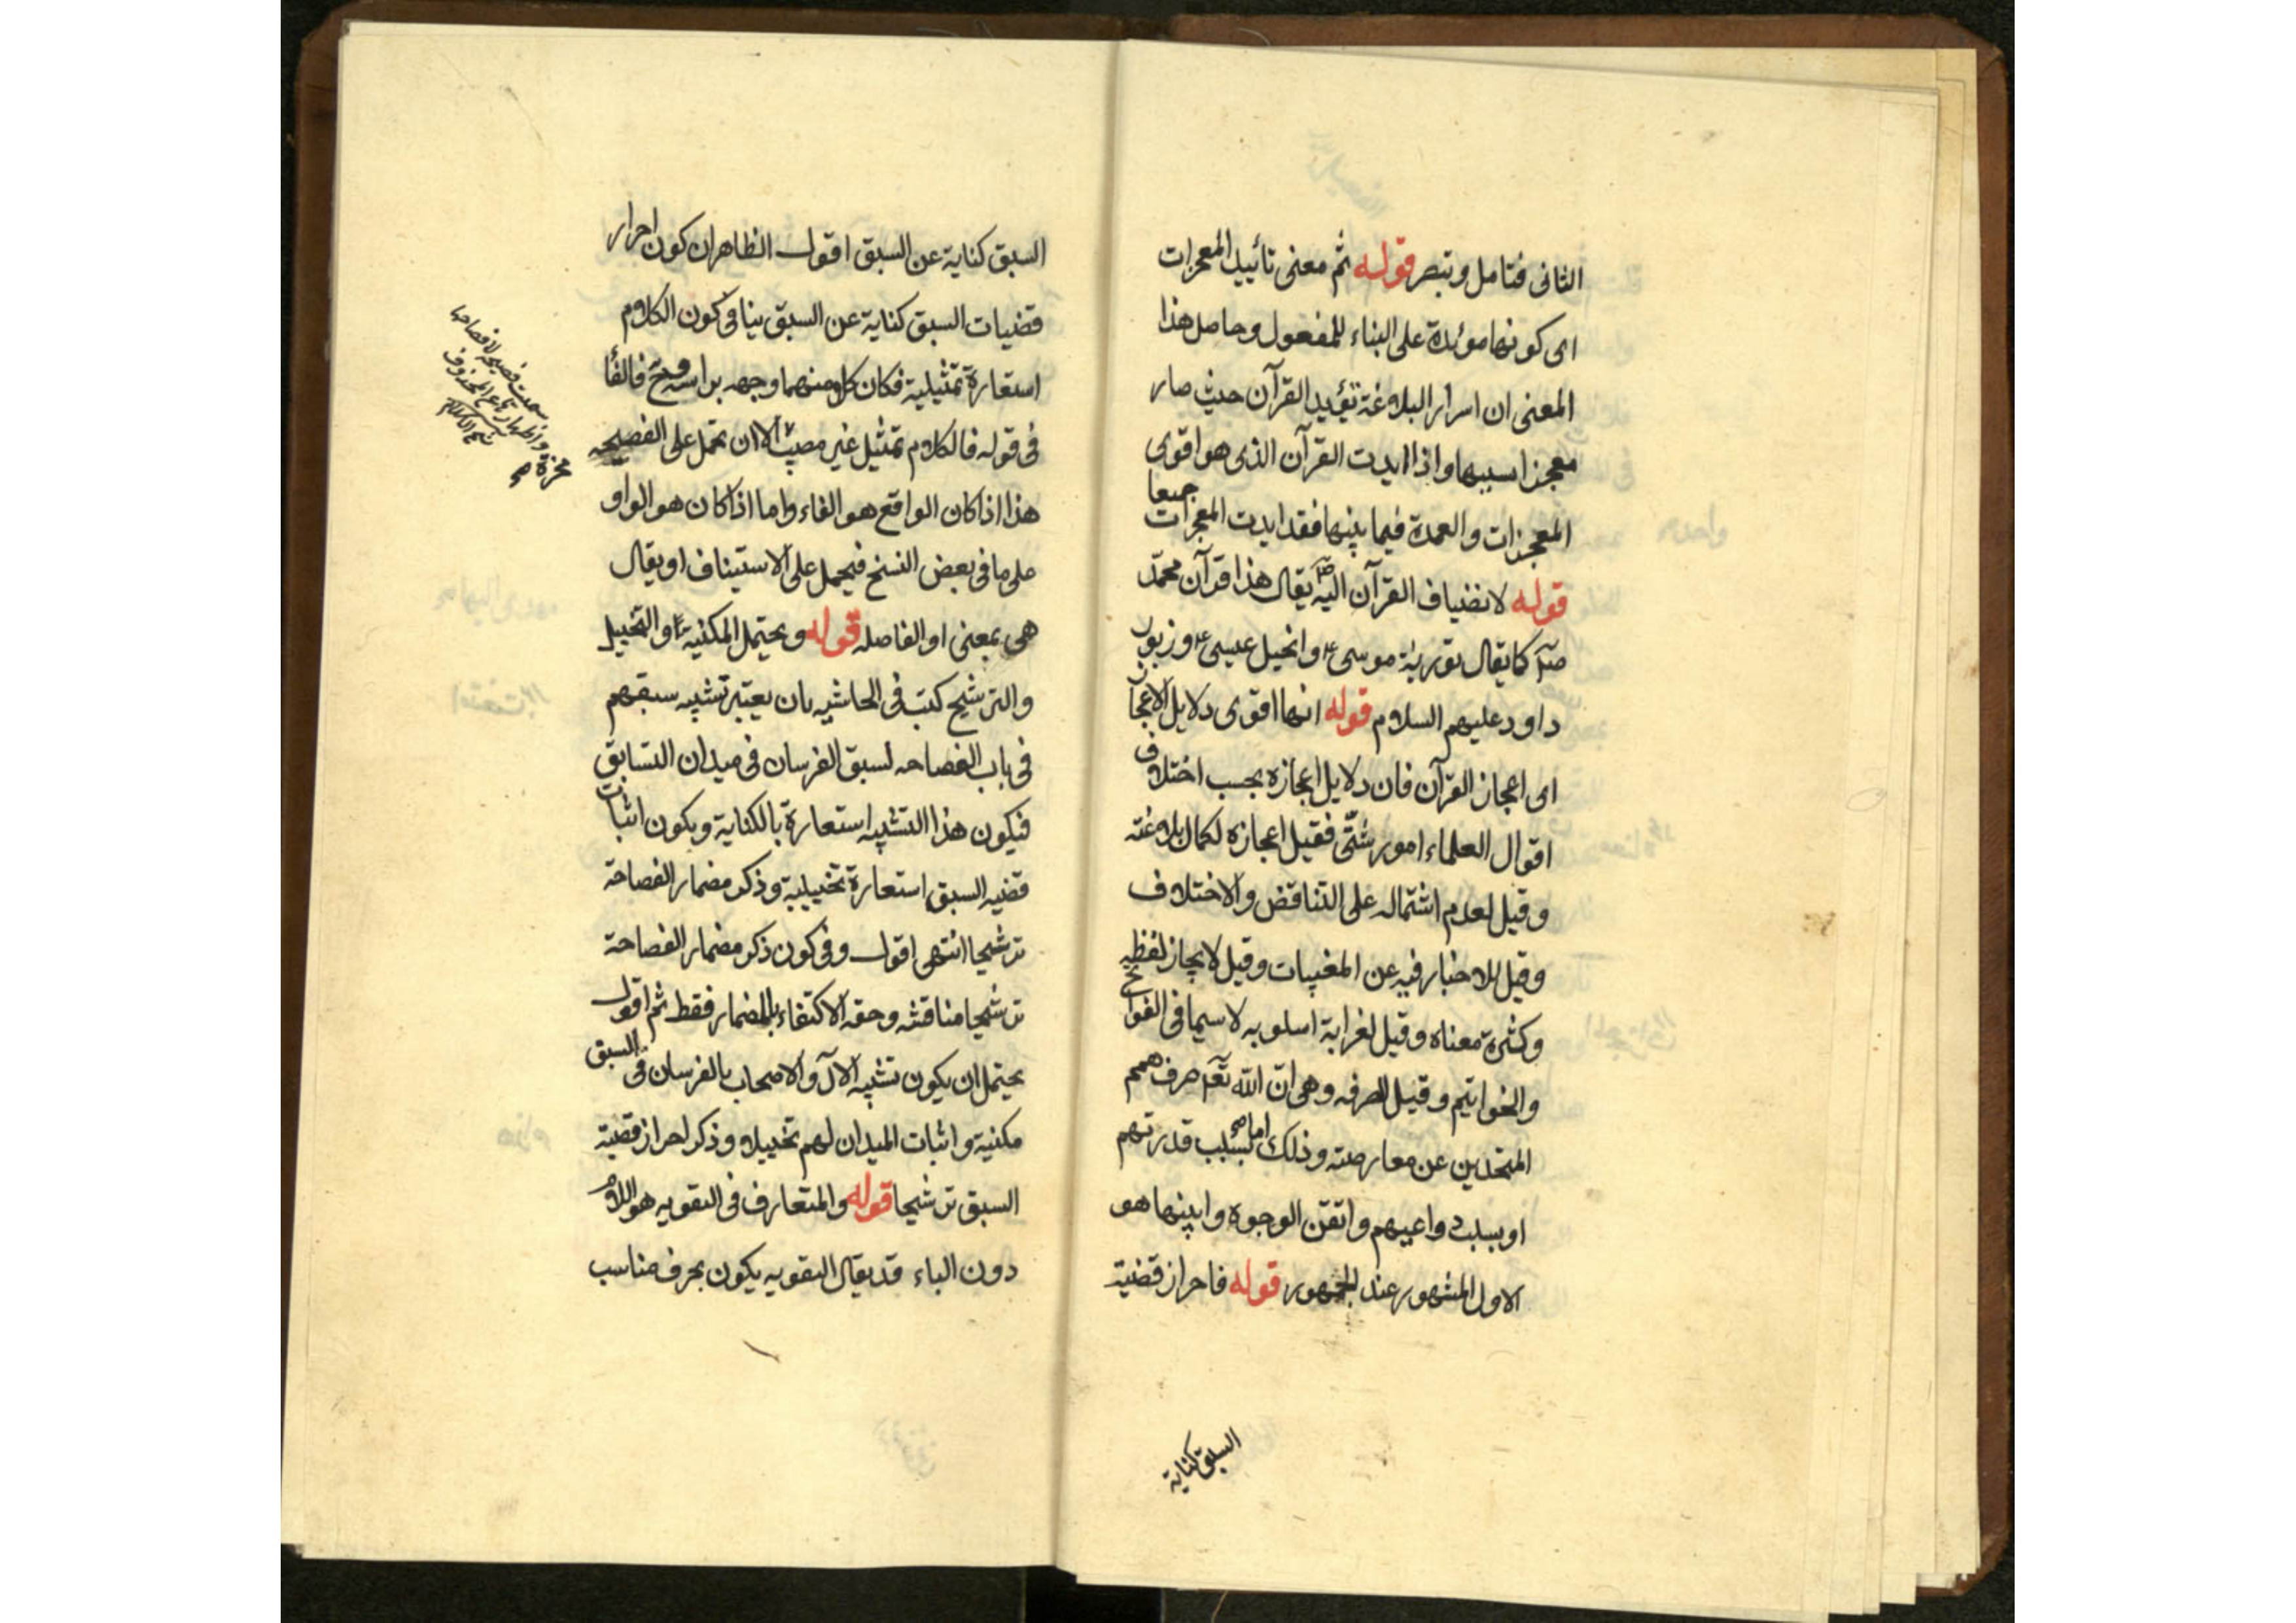 الثانى فتامل وتبصر قوله ثم معنى تأييد المعجزات
اى كونها مؤيدة على البناء للمفعول وحاصل هذا
المعنى ان اسرار البلاغة تؤيد القرآن حيث صار
معجزا بسببها واذا ايدت القرآن الذى هو اقوى
المعجزات والعمدة فيما بينها فقد ايدت المعجزات جميعا
قوله لانضياف القرآن اليه صلى يقال هذا قرآن محمد
صلى كما يقال تورية موسى ع وانجيل عيسى ع وزبور
داود عليهم السلام قوله انها اقوى دلايل الاعجاز
اى اعجاز القرآن فان دلايل اعجازه بحسب اختلاف
اقوال العلماء امور شتّى فقيل اعجازه لكمال بلاغته
وقيل لعدم اشتماله على التناقض والاختلاف
وقيل للاخبار فيه عن المغيبات وقيل لايجاز لفظه
وكثرة معناه وقيل لغرابة اسلوبه لا سيما فى الفواتح
والخواتيم وقيل للصرفه وهى انّ الله تعم صرف همم
المتحدين عن معارضته وذلك اما بسلب قدرتهم
او بسلب دواعيهم واتقن الوجوه وابينها هو
الاول المشهور عند الجمهور قوله فاحراز قضية
السبق كناية
السبق كناية عن السبق اقول الظاهر ان كون احراز
قضيات السبق كناية عن السبق ينافى كون الكلام
استعارة تمثيلية فكان كلا منهما وجه براسه فالفا
فى قوله فالكلام تمثيل غير مصيب الا ان تحمل على الفصيحه
هذا اذا كان الواقع هو الفاء واما اذا كان هو الواو
على ما فى بعض النسخ فيحمل على الاستيناف او يقال
هى بمعنى او الفاصله قوله ويحتمل المكنية والتخييل
والترشيح كتب فى الحاشيه بان يعتبر تشبيه سبقهم
فى باب الفصاحه لسبق الفرسان فى ميدان التسابق
فيكون هذا التشبيه استعارة بالكناية ويكون اثبات
قضيه السبق استعارة تخييلية وذكر مضمار الفصاحة
ترشيحا انتهى اقول وفى كون ذكر مضمار الفصاحة
ترشيحا مناقشه وحقه الاكتفاء بالمضمار فقط ثم اقول
يحتمل ان يكون تشبيه الآل والاصحاب بالفرسان فى السبق
مكنية واثبات الميدان لهم تخييلا وذكر احراز قضية
السبق ترشيحا قوله والمتعارف فى التقويه هو اللام
دون الباء قد يقال التقويه يكون بحرف مناسب
سميت فصيحة لافصاحها
واظهارها عن المحذوف